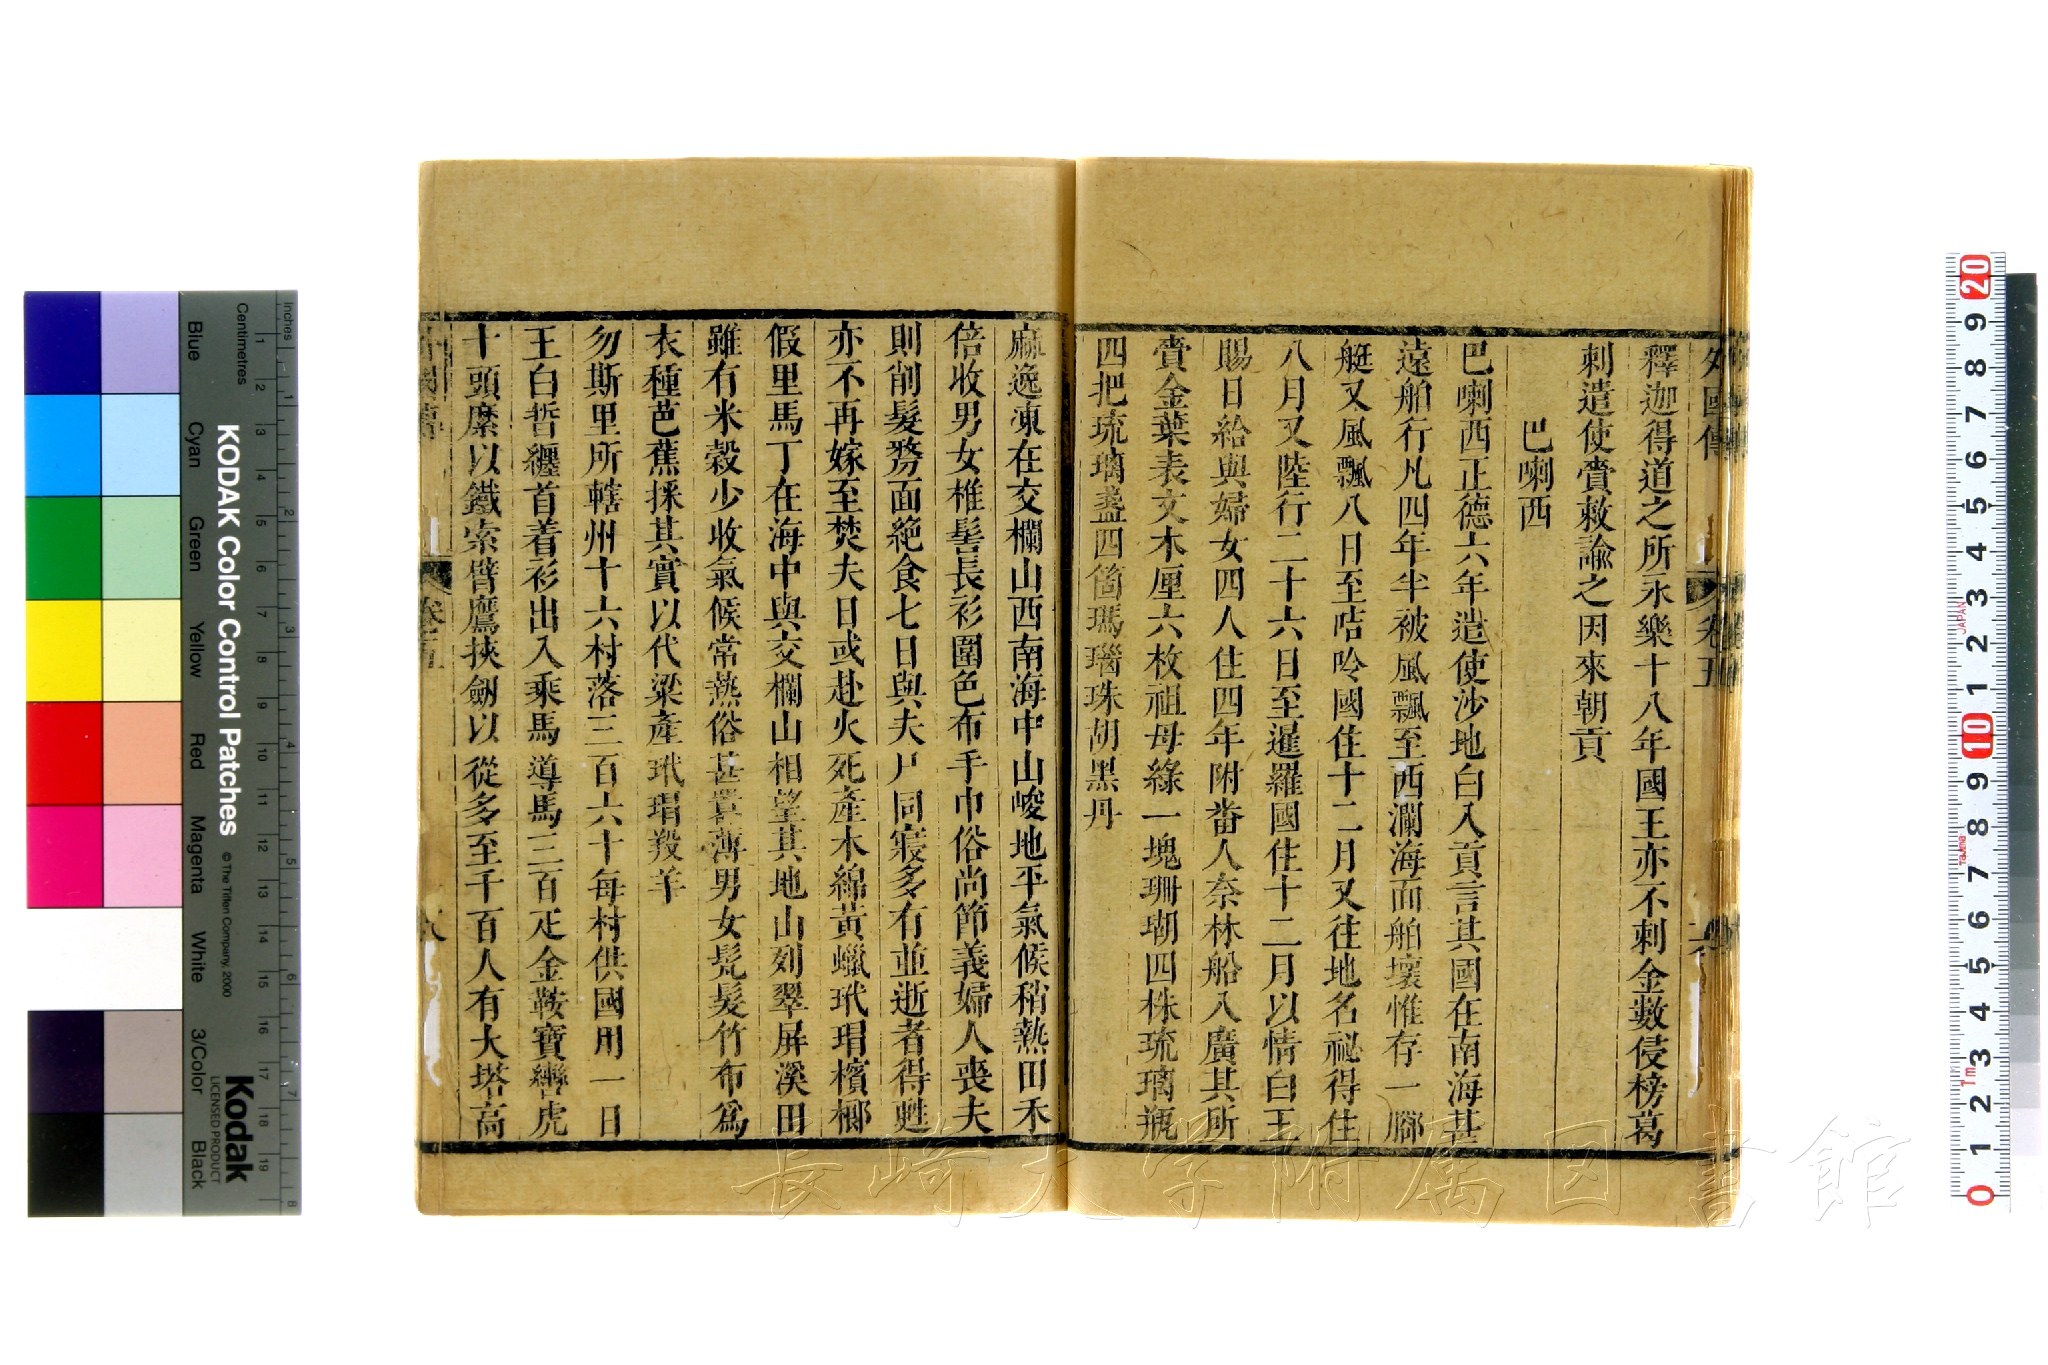 外國傳
卷五
釋迦得道之所永樂十八年國王亦不剌金數侵榜葛
剌遣使賷敕諭之因來朝貢
巴喇西
巴喇西正德六年遣使沙地白入貢言其國在南海甚
遠船行凡四年半被風飄至西瀾海面舶壞惟存一腳
艇又風飄八日至咭呤國住十二月又往地名祕得住
八月又陸行二十六日至暹羅國住十二月以情白王
賜日給與婦女四人住四年附畨人奈林船入廣其所
賷金葉表文木匣六枚祖母綠一塊珊瑚四株琉璃瓶
四把琉璃盞四箇瑪瑙珠胡黑丹
麻逸凍在交欄山西南海中山峻地平氣候稍熱田禾
倍收男女椎髻長衫圍色布手巾俗尚節義婦人喪夫
則削髮剺面絕食七日與夫尸同寢多有並逝者得甦
亦不再嫁至焚夫日或赴火死產木綿黃蠟玳瑁檳榔
假里馬丁在海中與交欄山相望其地山列翠屏溪田
雖有米穀少收氣候常熱俗甚囂薄男女髡髮竹布爲
衣種芭蕉採其實以代粱產玳瑁羖羊
勿斯里所轄州十六村落三百六十每村供國用一日
王白晳纒首着衫出入乘馬導馬三百疋金鞍寶轡虎
十頭縻以鐵索臂鷹挾劒以從多至千百人有大塔高
卷五
KODAK Color Control Patches
© The Tiffen Company, 2000
Kodak
LICENSED PRODUCT
Inches
Centimetres
Blue
Cyan
Green
Yellow
Red
Magenta
White
3/Color
Black
1 2 3 4 5 6 7 8
1 2 3 4 5 6 7 8 9 10 11 12 13 14 15 16 17 18 19
20 9 8 7 6 5 4 3 2 1 10 9 8 7 6 5 4 3 2 1 0
JAPAN
1m
長崎大学附属図書館